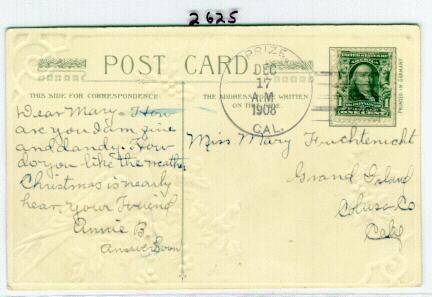 2625
POST CARD
THIS SIDE FOR CORRESPONDENCE
THE ADDRESS WRITTEN
ON THIS SIDE
PRIZE
DEC
17
A M
1908
CAL.
PRINTED IN GERMANY
Dear Mary - How
are you I am fine
and dandy. How
do you like the weather
Christmas is nearly
hear, Your Friend
Annie B.
Answer Soon
Miss Mary Fruchtenicht
Grand Island
Colusa Co